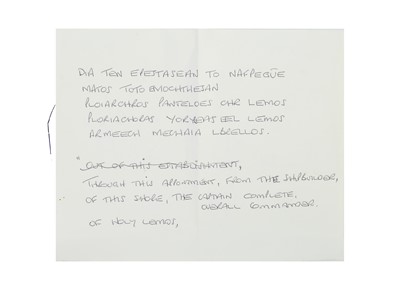 DIA TEN EPESTASEAN TO NAFPEGUE
MATOS TOTO ENOCHTHESAN
PLOIARCHROS PANTELOES OHR LEMOS
PLORIACHORAS YORYEAS EEL LEMOS
ARMEECH MECHAIA LBRELLOS.
"OUT OF THIS ESTABLISHMENT,
THROUGH THIS APPOINTMENT, FROM THE SHIPBUILDER,
OF THIS SHORE, THE CAPTAIN COMPLETE.
OVERALL COMMANDER.
OF HOLY LEMOS,